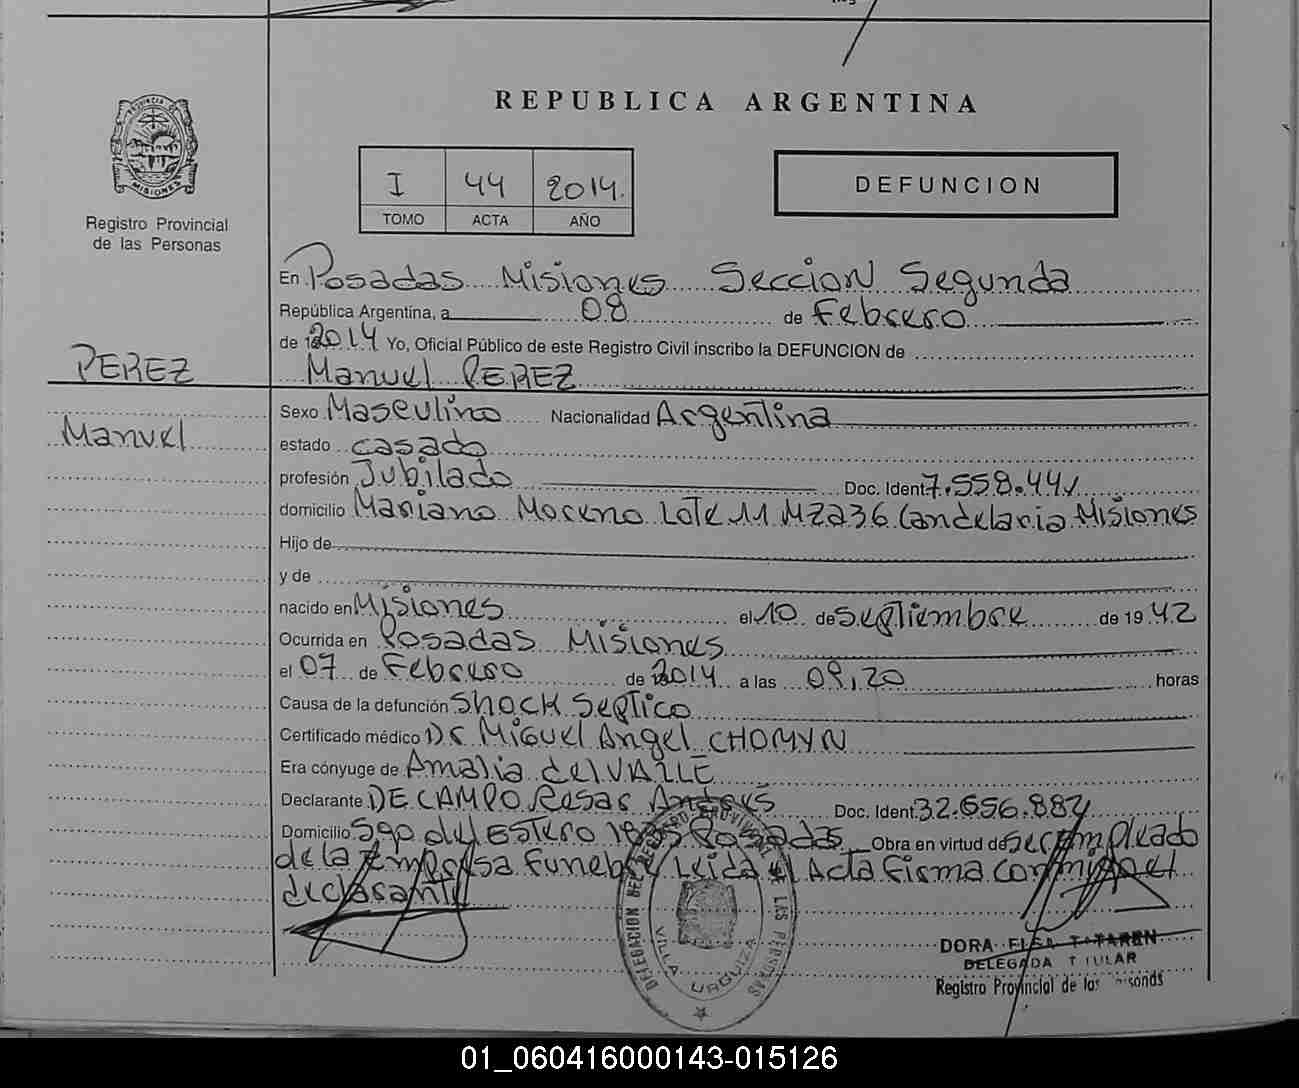 REPUBLICA ARGENTINA
PROVINCIA DE
MISIONES
Registro Provincial
de las Personas
I 44 2014.
TOMO ACTA AÑO
DEFUNCION
En Posadas Misiones Seccion Segunda
República Argentina, a 08 de Febrero
de 2014 Yo, Oficial Público de este Registro Civil inscribo la DEFUNCION de
PEREZ
Manuel PEREZ
Sexo Masculino Nacionalidad Argentina
Manuel
estado casado
profesión Jubilado Doc. Ident. 7.558.441
domicilio Mariano Moreno Lote 11 MZ236 Candelaria Misiones
Hijo de
y de
nacido en Misiones el 10 de septiembre de 1942
Ocurrida en Posadas Misiones
el 07 de Febrero de 2014 a las 09,20 horas
Causa de la defunción Shock Septico
Certificado médico Dr Miguel Angel CHOMYN
Era cónyuge de Amalia del VALLE
Declarante DE CAMPO Resar Andres Doc. Ident. 32.656.882
Domicilio Sgo del Estero Posadas Obra en virtud de ser Empleado
de la Empresa Funebre Leida el Acta Firma conmigo el
declarante
DELEGACION DEL REGISTRO PROVINCIAL DE LAS PERSONAS
VILLA URQUIZA
DORA ELSA
DELEGADA TITULAR
Registro Provincial de las Personas
01_060416000143-015126